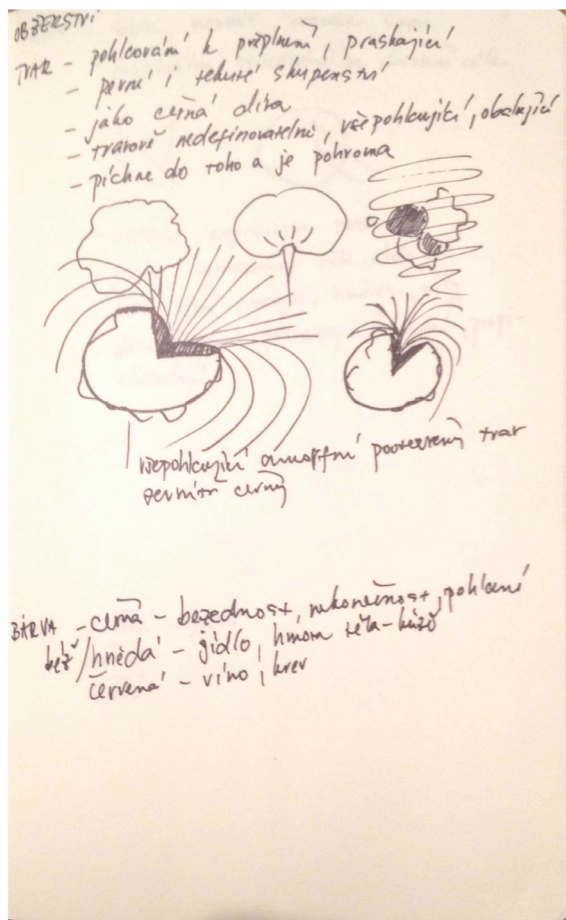 OBŽERSTVÍ
TVAR - pohlcování k přeplnění, praskající
- pevné i tekuté skupenství
- jako černá díra
- tvarově nedefinovatelní, všepohlcující, obalující
- píchne do toho a je pohroma
všepohlcující amorfní pootevřený tvar
zevnitř černý
BARVA - černá - bezednost, nekonečnost, pohlcení
béž / hnědá - jídlo, hmota těla - kůže
červená - víno, krev